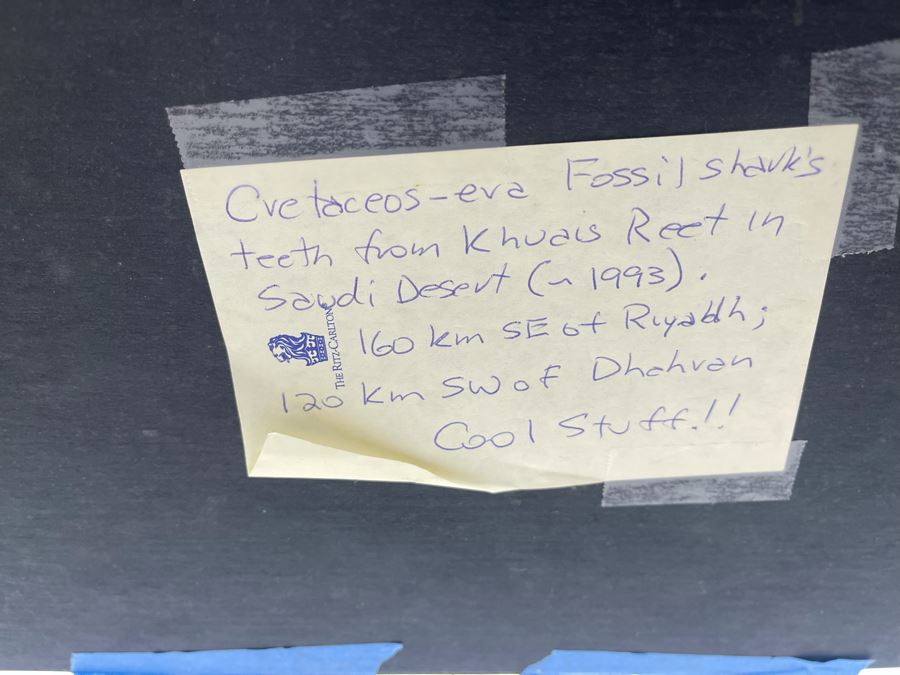 Cretaceos-era Fossil shark's
teeth from Khuais Reet in
Saudi Desert (~ 1993).
160 km SE of Riyadh;
120 km SW of Dhahran
Cool Stuff!!
THE RITZ-CARLTON®